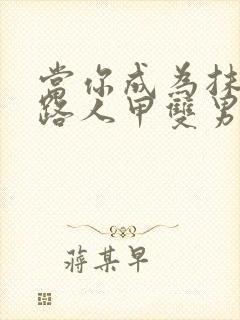 當你成為抹
路人甲雙男
蔣某早